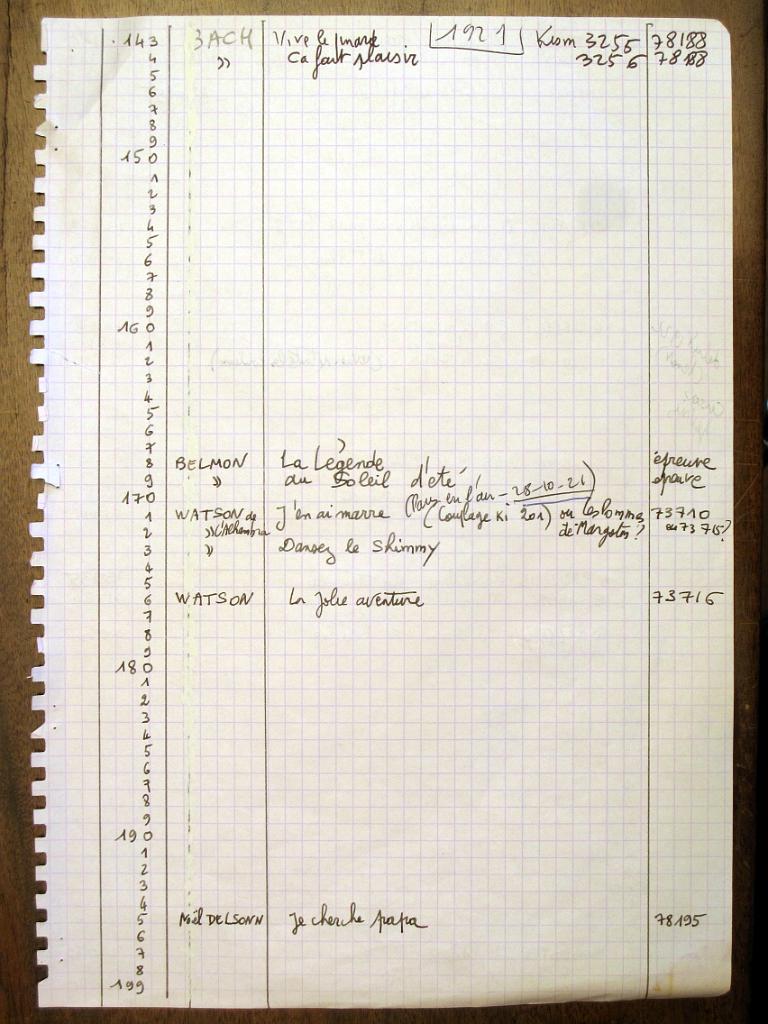 143 BACH Vive le 1921 Ksm 3256 78188
4 » Ca fait plaisir 3256 78188
5
6
7
8
9
150
1
2
3
4
5
6
7
8
9
160
1
2
3
4
5
6
7
8 BELMON La Légende épreuve
9 » du Soleil d'été épreuve
170 (Paris en l'air - 28-10-21)
1 WATSON de J'en ai marre (Couplage Ki 201) ou les pommes 73710
2 » l'Alhambra de Margoton? ou 73715?
3 » Dansez le Shimmy
4
5
6 WATSON La Jolie aventure 73716
7
8
9
180
1
2
3
4
5
6
7
8
9
190
1
2
3
4
5 Noël DELSONN Je cherche papa 78195
6
7
8
199